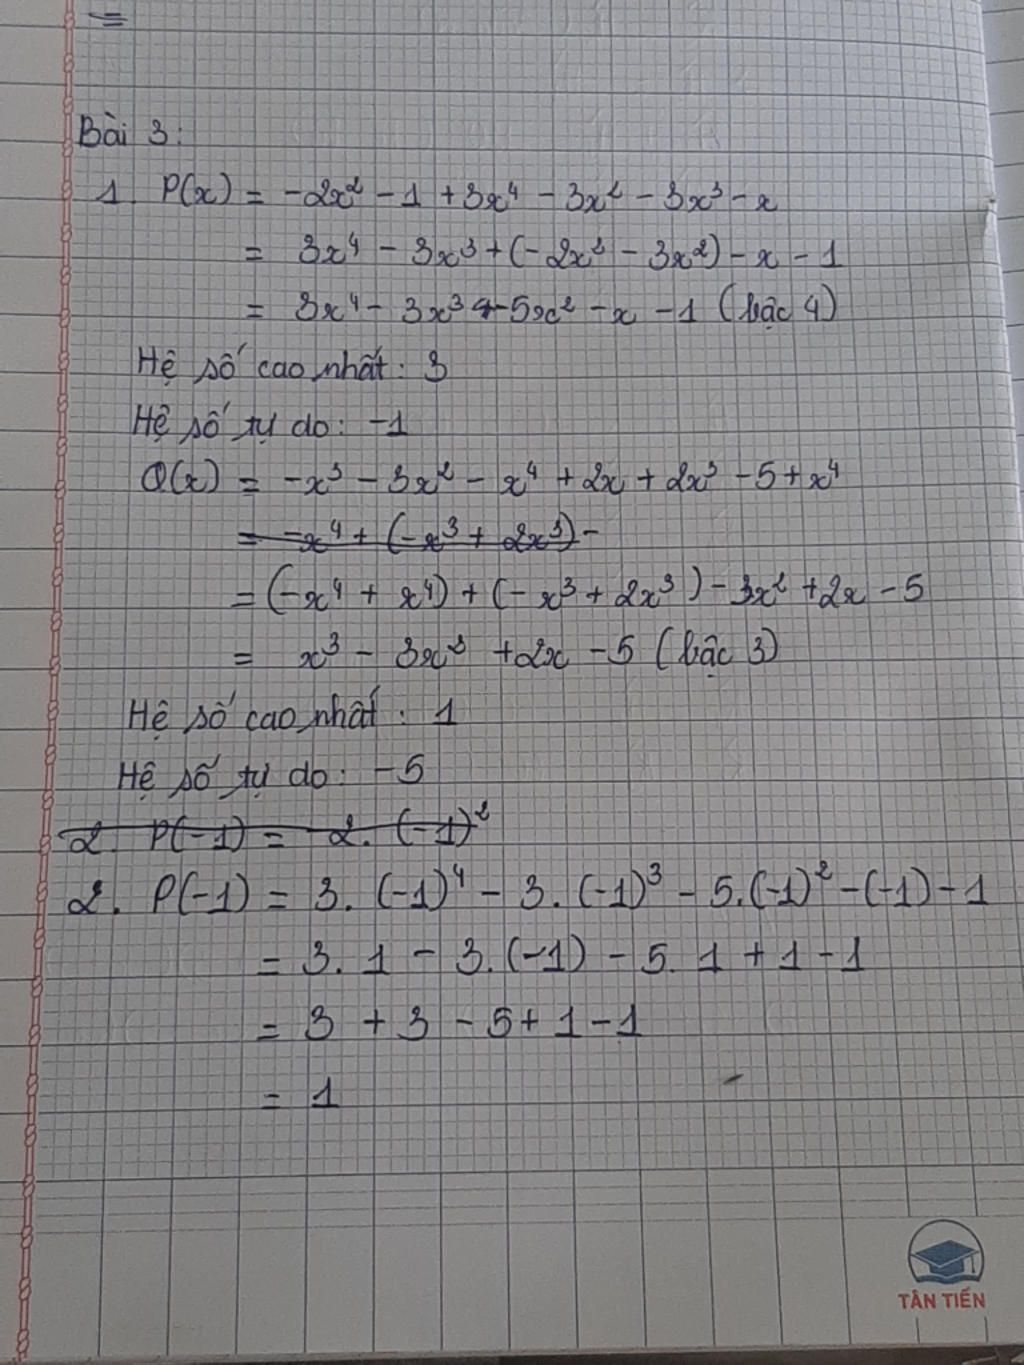 Bài 3:
1. P(x) = -2x² - 1 + 3x⁴ - 3x² - 3x³ - x
= 3x⁴ - 3x³ + (-2x² - 3x²) - x - 1
= 3x⁴ - 3x³ - 5x² - x - 1 (bậc 4)
Hệ số cao nhất: 3
Hệ số tự do: -1
Q(x) = -x³ - 3x² - x⁴ + 2x + 2x³ - 5 + x⁴
= -x⁴ + (-x³ + 2x³) -
= (-x⁴ + x⁴) + (-x³ + 2x³) - 3x² + 2x - 5
= x³ - 3x² + 2x - 5 (bậc 3)
Hệ số cao nhất: 1
Hệ số tự do: -5
2. P(-1) = 2. (-1)²
2. P(-1) = 3. (-1)⁴ - 3. (-1)³ - 5.(-1)² - (-1) - 1
= 3. 1 - 3.(-1) - 5. 1 + 1 - 1
= 3 + 3 - 5 + 1 - 1
= 1
TÂN TIẾN